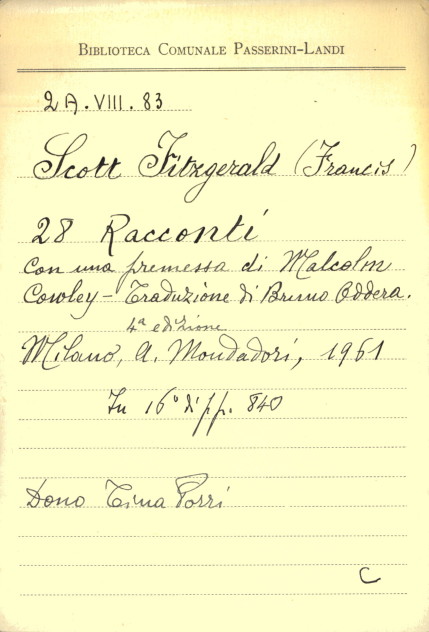 BIBLIOTECA COMUNALE PASSERINI-LANDI
2A.VIII.83
Scott Fitzgerald (Francis)
28 Racconti
con una premessa di Malcolm
Cowley - Traduzione di Bruno Oddera.
4ª edizione
Milano, A. Mondadori, 1961
In 16° di pp. 840
Dono Tina Porri
C